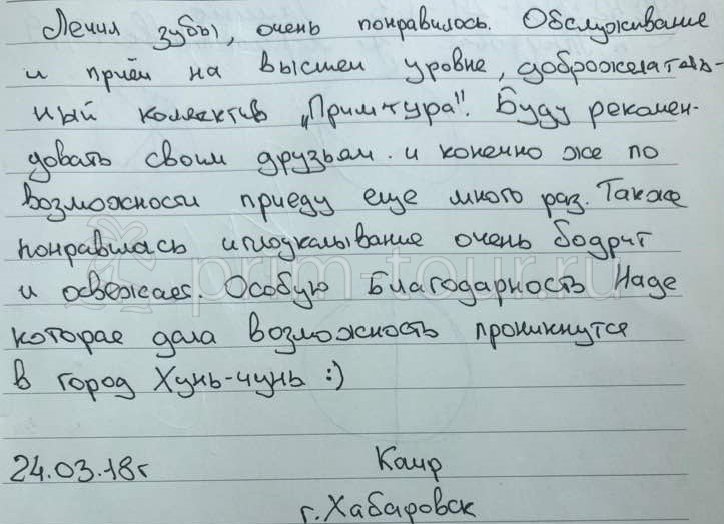 Лечил зубы, очень понравилось. Обслуживание
и приём на высшем уровне, доброжелатель-
ный коллектив "Примтура". Буду рекомен-
довать своим друзьям. и конечно же по
возможности приеду еще много раз. Также
понравилась иглоукалывание очень бодрит
и освежает. Особую Благодарность Наде
которае дала возможность проникнутся
в город Хунь-чунь :)
24.03.18г
Каир
г. Хабаровск
prim-tour.ru